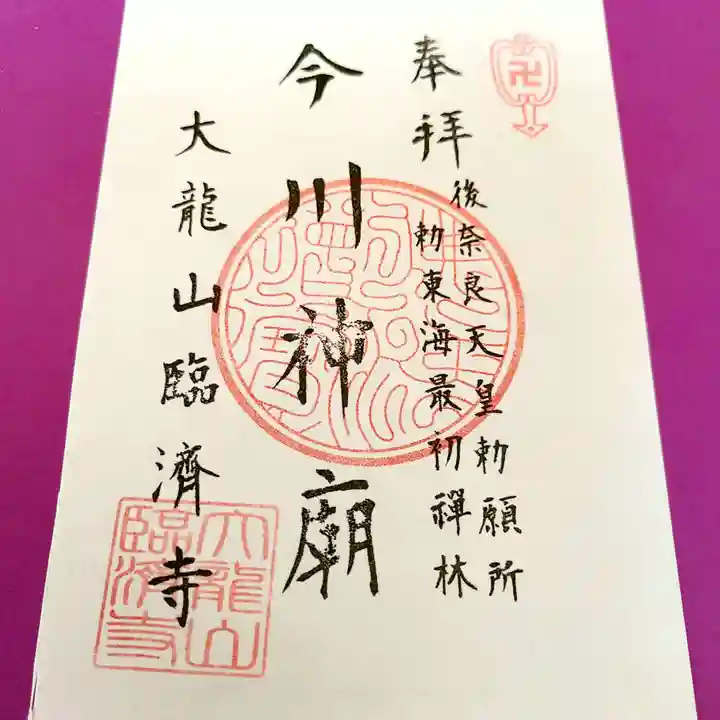 奉拝
後奈良天皇勅願所
勅東海最初禪林
今川神廟
大龍山臨濟寺
卍
大龍山
臨濟寺